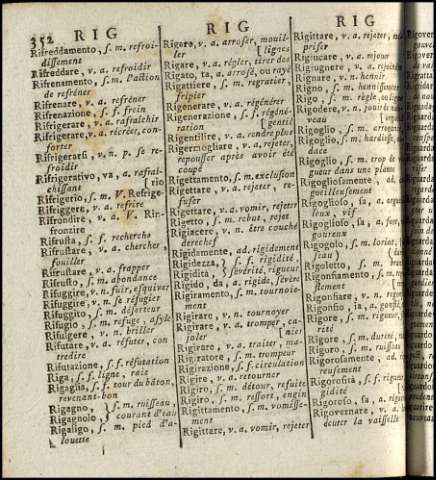 352 RIG RIG RIG
Rifreddamento, s. m. refroi-
dissement
Rifreddare, v. a. refroidir
Rifrenamento, s. m. l'action
de refréner
Rifrenare, v. a. refréner
Rifrenazione, s. f. frein
Rifrigerare, v. a. rafraichir
Rifrigerare, v. a. récréer, con-
forter
Rifrigerarsi, v. n. p. se re-
froidir
Rifrigerativo, va, a. rafrai-
chissant [rio
Rifrigerio, s. m. V. Refrige-
Rifriggere, v. a. refrire
Rifrondire, v. a. V. Rin-
fronzire
Rifrusta, s. f. recherche
Rifrustare, v. a. chercher,
fouiller
Rifrustare, v. a. frapper
Rifrusto, s. m. abondance
Rifuggire, v. n. fuir, esquiver
Rifuggire, v. n. se réfugier
Rifuggito, s. m. déserteur
Rifugio, s. m. refuge, asyle
Rifulgere, v. n. briller
Rifutare, v. a. réfuter, con-
tredire
Rifutazione, s. f. réfutation
Riga, s. f. ligne, raie
Rigaglia, s. f. tour du bâton,
revenant-bon
Rigagno, } s. m. ruisseau,
Rigagnolo, } courant d'eau
Rigaligo, s. m. pied d'a-
louette
Rigare, v. a. arroser, mouil-
ler [lignes
Rigare, v. a. régler, tirer des
Rigato, ta, a. arrosé, ou rayé
Rigattiere, s. m. regratier,
fripier
Rigenerare, v. a. régénérer
Rigenerazione, s. f. régéné-
ration [gentil
Rigentilire, v. a. rendre plus
Rigermogliare, v. a. rejeter,
repousser après avoir été
coupé
Rigettamento, s. m. exclusion
Rigettare, v. a. rejeter, re-
fuser
Rigettare, v. a. vomir, rejeter
Rigetto, s. m. rebut, rejet
Rigiacere, v. n. être couché
derechef
Rigidamente, ad. rigidement
Rigidezza, } s. f. rigidité,
Rigidità, } sévérité, rigueur
Rigido, da, a. rigide, sévère
Rigiramento, s. m. tournoie-
ment
Rigirare, v. n. tournoyer
Rigirare, v. a. tromper, ca-
joler [nier
Rigirare, v. a. traiter, ma-
Rigiratore, s. m. trompeur
Rigirazione, s. f. circulation
Rigire, v. n. retourner
Rigiro, s. m. détour, refuite
Rigiro, s. m. ressort, engin
Rigittamento, s. m. vomisse-
ment
Rigittare, v. a. vomir, rejeter
Rigittare, v. a. rejeter, mé-
priser
Rigiucare, v. a. rejouer
Rigiugnere, v. a. rejoindre
Rignare, v. n. hennir
Rigno, s. m. hennissement
Rigo, s. m. règle, ou ligne
Rigodere, v. n. jouir de
veau
Rigoglio, s. m. arrogance,
Rigoglio, s. m. hardiesse,
dace
Rigoglio, s. m. trop de vi-
gueur dans une plante
Rigogliosamente, ad.
gueilleusement
Rigoglioso, sa, a. orgueil-
leux, vif
Rigoglioso, sa, a. fort,
goureux
Rigogolo, s. m. loriot,
seau)
Rigoletto, s. m.
Rigonfiamento, s. m.
flement
Rigonfiare, v. n.
Rigonfio, ia, a. gonflé
Rigore, s. m. rigueur,
rité
Rigore, s. m. dureté,
Rigoro, s. m. ruisseau
Rigorosamente, ad. rigou-
reusement
Rigorosità, s. f. rigueur,
gidité
Rigoroso, sa, a. rigoureux
Rigovernare, v. a.
écurer la vaisselle